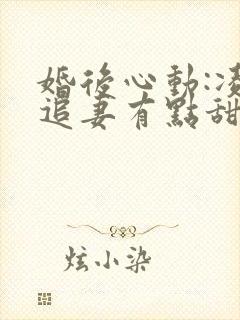 婚後心動:凌
追妻有點甜
炫小染